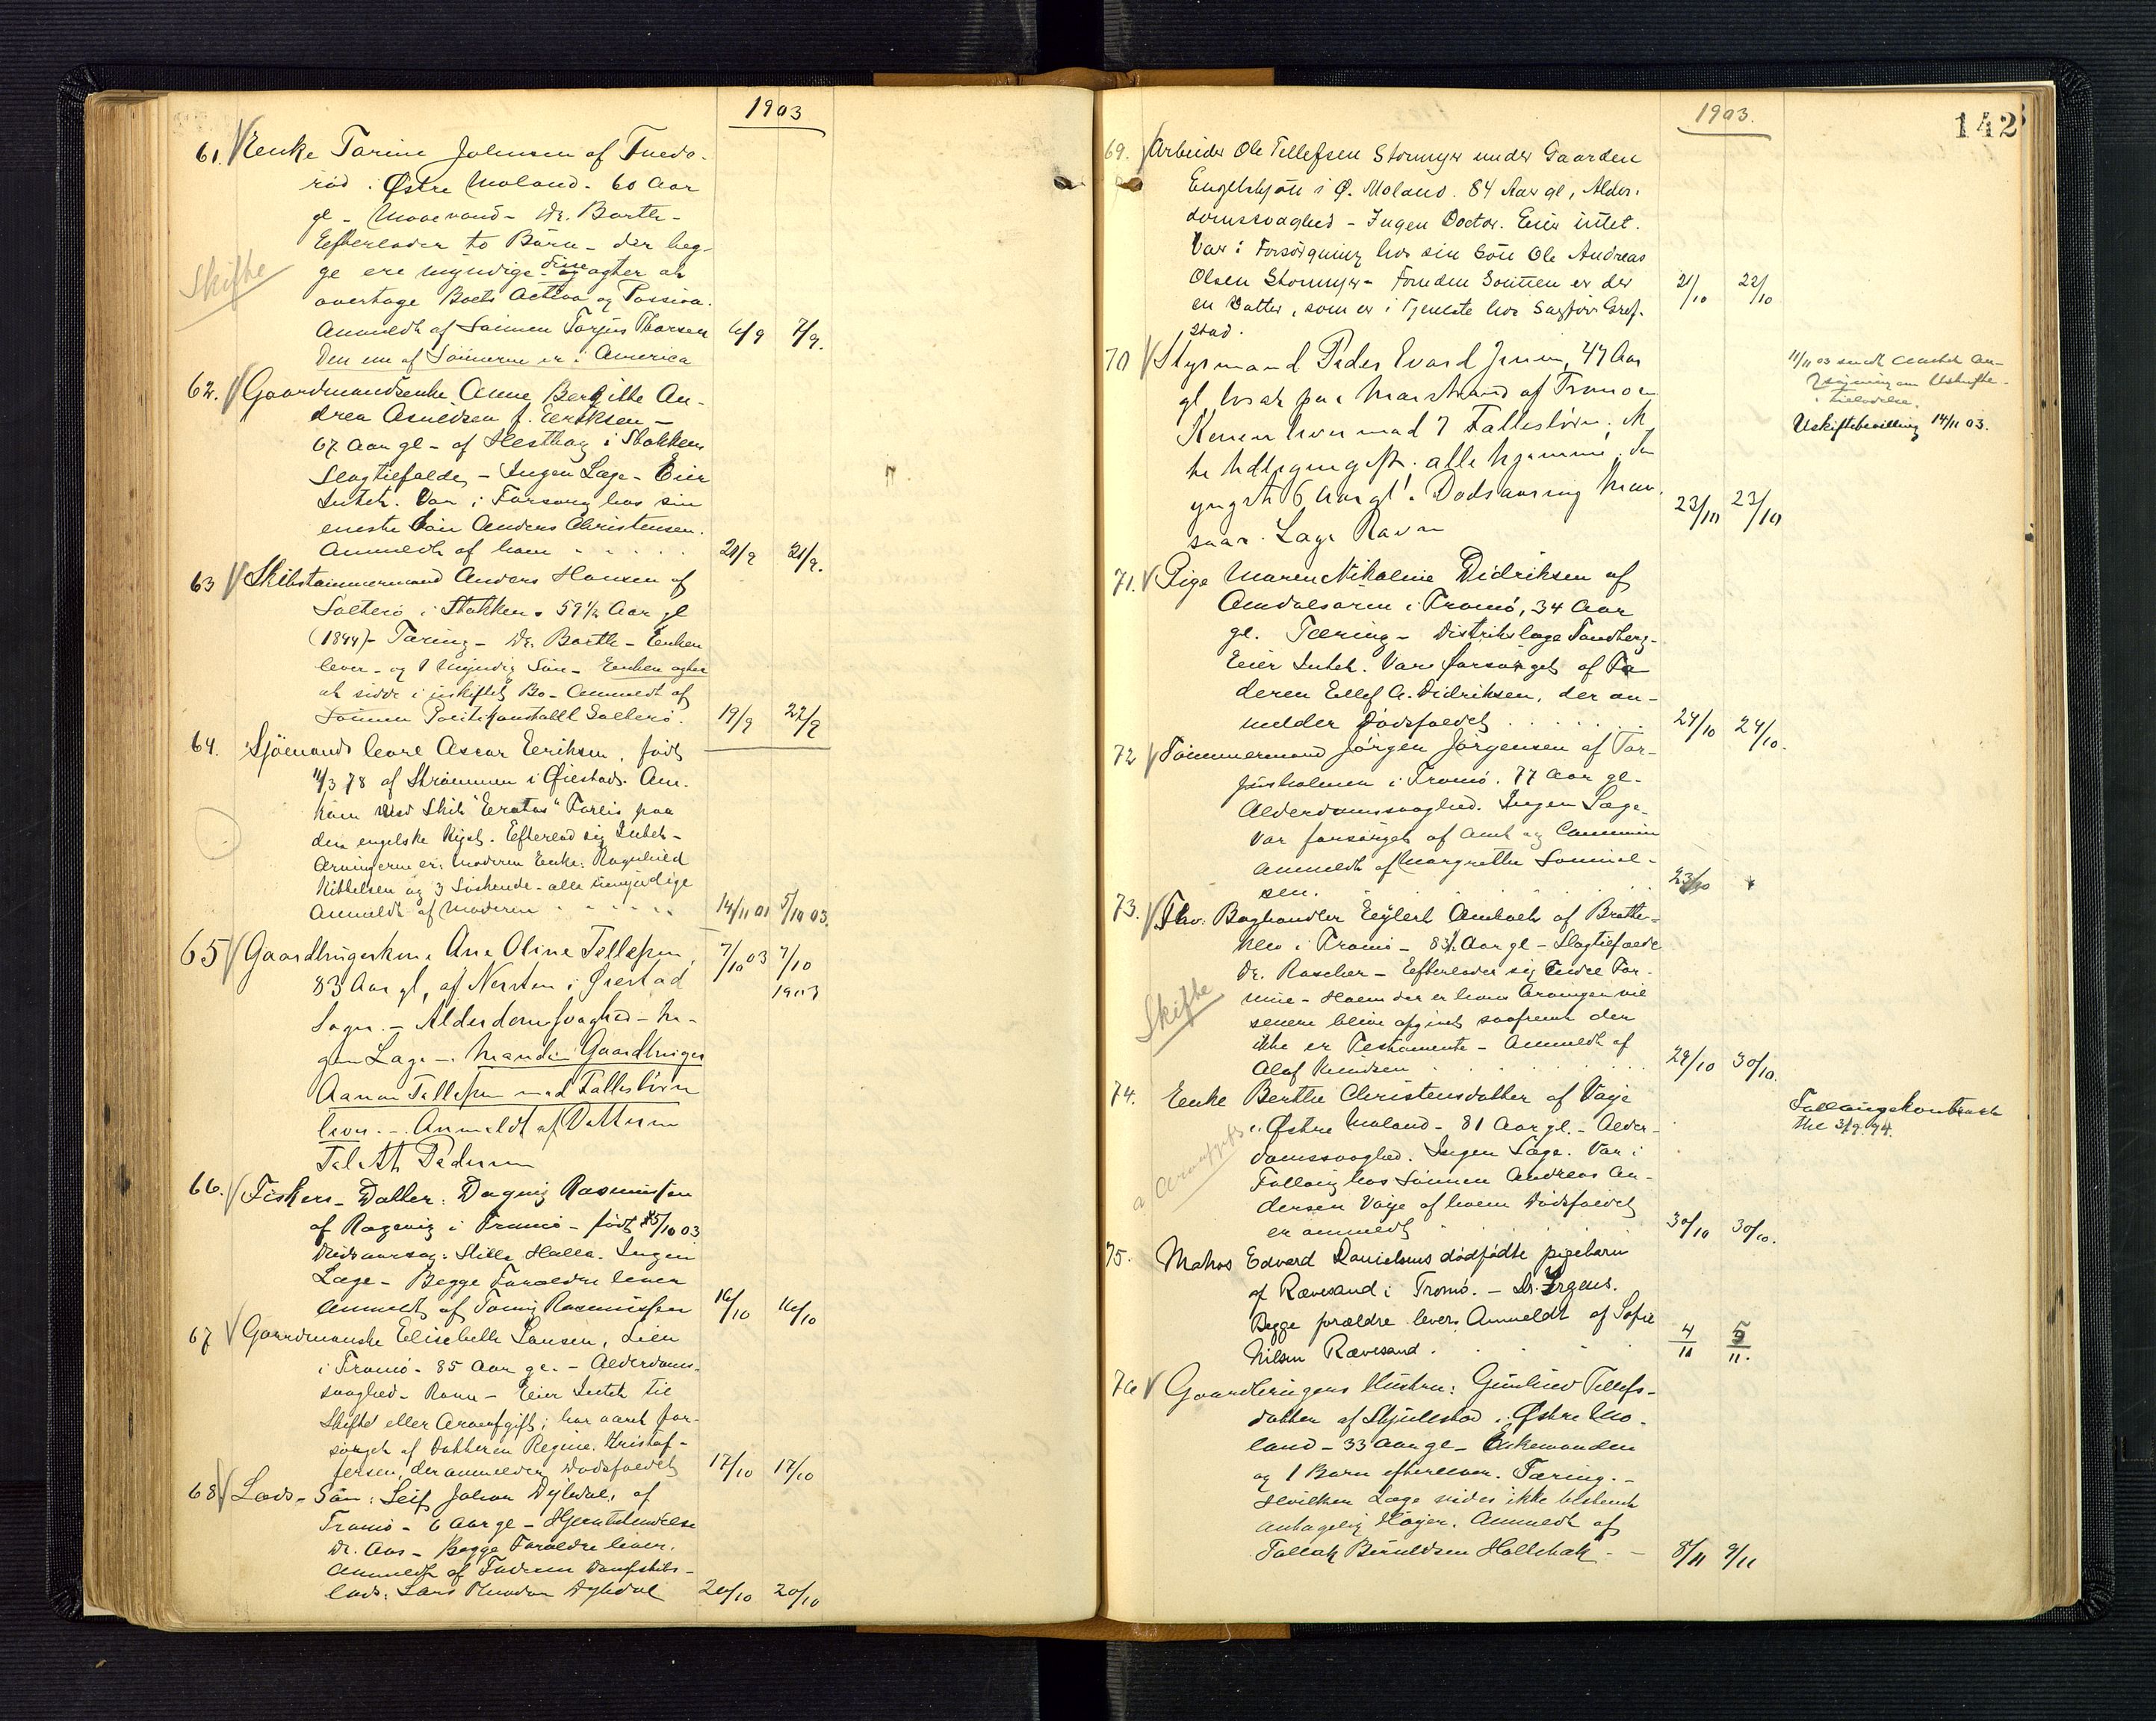 1903
61. Enke Tarine Johnsen af Fuevo-
rød i Østre Moland. 60 Aar
gl - Mavevand - Dr. Barth -
Efterlader to Børn - der beg-
ge ere myndige - disse agter at
overtage Boets Activa og Passiva.
Anmeldt af Sønnen Tarjus Thorsen 6/9 7/9.
Den ene af Sønnerne er i America
Skifte
62. Gaardmandsenke Anne Bergithe An-
drea Asnildsen f. Eriksen -
67 Aar gl - af Hesthag i Stokken
Slagtilfælde, - Ingen Læge - Eier
Intet. Var i Forsørg hos sin
eneste Søn Anders Christensen.
Anmeldt af ham 21/9 21/9.
63 Skibstømmermand Anders Hansen af
Salterø i Stokken. 59 1/2 Aar gl
(1844) - Tæring - Dr. Barth - Enken
lever - og 1 Myndig Søn - Enken agter
at sidde i uskiftet Bo - Anmeldt af
Sønnen Politikonstabel Salterø. 19/9 22/9
64. Sjømand Carl Ascar Eriksen, født
11/3 78 af Strømmen i Øiestad. Om-
kom med Skib "Eratus" Forlis paa
den engelske Kyst. Efterlod sig Intet -
Arvingerne er: Moderen Enke: Ragnhild
Kittelsen og 3 Søskende - alle umyndige
Anmeldt af Moderen 14/11 01 5/10 03.
65 Gaardbrugerkone Ane Oline Tellefsen, 7/10 03 7/10
83 Aar gl, af Nersten i Øiestad 1903
Sogn. - Alderdomssvaghed - In-
gen Læge - Manden Gaardbruger
Aanon Tellefsen med Fællesbørn
lever. - Anmeldt af Datteren
Taleth Pedersen
66. Fiskers - Datter: Dagny Rasmussen
af Rægevig i Tromø - født 15/10 03
Dødsaarsag: Stille Halla. Ingen
Læge - Begge Forældre lever
Anmeldt af Tomy Rasmussen 16/10 16/10
67 Gaardmanske Elisebeth Larsen, Lien
i Tromø - 85 Aar gl. - Alderdoms-
svaghed - Ravn - Eier Intet til
Skifte eller Arveafgift; har været for-
sørget af Datteren Regine Kristof-
fersen, der anmelder Dødsfaldet 17/10 17/10
68 Lods - Søn: Leif Johan Dybdal, af
Tromø - 6 Aar gl - Hjernebetændelse
Dr. Aas - Begge Forældre lever.
Anmeldt af Faderen Dampskibs-
lods: Lars Theodor Dybdal 20/10 20/10
1903.
142
69. Arbeider Ole Tellefsen Stormyr under Gaarden
Engelskjøn i Ø. Moland. 84 Aar gl, Alder-
domssvaghed - Ingen Doctor. Eier intet.
Var i Forsørgning hos sin Søn Ole Andreas
Olsen Stormyr - Foruden Sønnen er der 21/10 22/10
en Datter, som er i Tjeneste hos Sagfør. Gref-
stad.
70 Styrmand Peder Evard Jensen, 47 Aar
gl, bosat paa Marstrand af Tromøen
Konen lever med 7 Fællesbørn,
alle hjemme, den
yngste 6 Aar gl. Dødsaarsag
Læge Ravn 23/10 23/10
11/11 03 sendt Anstalt An-
søgning om Uskifte-
tilladelse.
Uskiftebevilling 14/11 03.
71. Pige Maren Nikoline Didriksen af
Omdalsøren i Tromø, 34 Aar
gl. Tæring - Distriktslæge Sandberg -
Eier Intet. Var forsørget af Fa-
deren Ellef A. Didriksen, der an-
melder Dødsfaldet 24/10 24/10.
72 Tømmermand Jørgen Jørgensen af Tor-
jusholmen i Tromø. 77 Aar gl -
Alderdomssvaghed. Ingen Læge.
Var forsørget af Amt og Commune
Anmeldt af Margrethe Sommel-
sen. 23/10
73. Fhv. Boghandler Eylert Ambach af Bratte-
klev i Tromø - 83 1/2 Aar gl - Slagtilfælde
Dr. Roscher - Efterlader sig Endel For-
mue - Hvem der er hans Arvinger vil
senere blive opgivet saafremt der
ikke er Testamente - Anmeldt af
Olaf Knudsen 29/10 30/10.
Skifte
74. Enke Berthe Christensdatter af Vaje
i Østre Moland - 81 Aar gl. - Alder-
domssvaghed. Ingen Læge. Var i
Follaug hos Sønnen Andreas An-
dersen Vaje af hvem Dødsfaldet
er anmeldt 30/10 30/10.
Follaugskontrakt
thl 3/9 94.
75. Matros Edvard Danielsens dødfødte pigebarn
af Rævesand i Tromø. - Dr. Irgens.
Begge forældre lever. Anmeldt af Sofie
Nilsen Rævesand. 4/11 5/11.
76 Gaardbrugers Hustru: Gunhild Tellefs-
datter af Skjulestad i Østre Mo-
land - 33 Aar gl - Enkemanden
og 1 Barn efterlever. Tæring. -
Hvilken Læge vides ikke bestemt
antagelig Høyer. Anmeldt af
Tallak Beruldsen Holtebak - 8/11 9/11